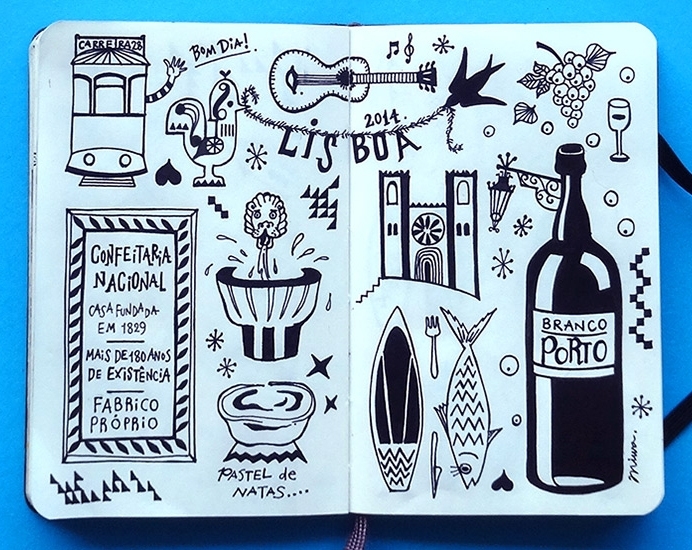 CARREIRA 28
BOM DIA!
2014
LISBOA
CONFEITARIA
NACIONAL
CASA FUNDADA
EM 1829
MAIS DE 180 ANOS
DE EXISTÊNCIA
FABRICO
PRÓPRIO
PASTEL de
NATAS....
BRANCO
PORTO
miwa.